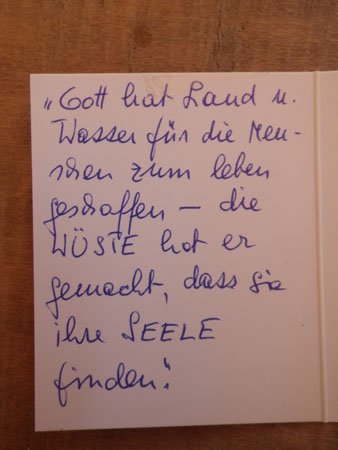 „Gott hat Land u.
Wasser für die Men-
schen zum leben
geschaffen – die
WÜSTE hat er
gemacht, dass sie
ihre SEELE
finden".